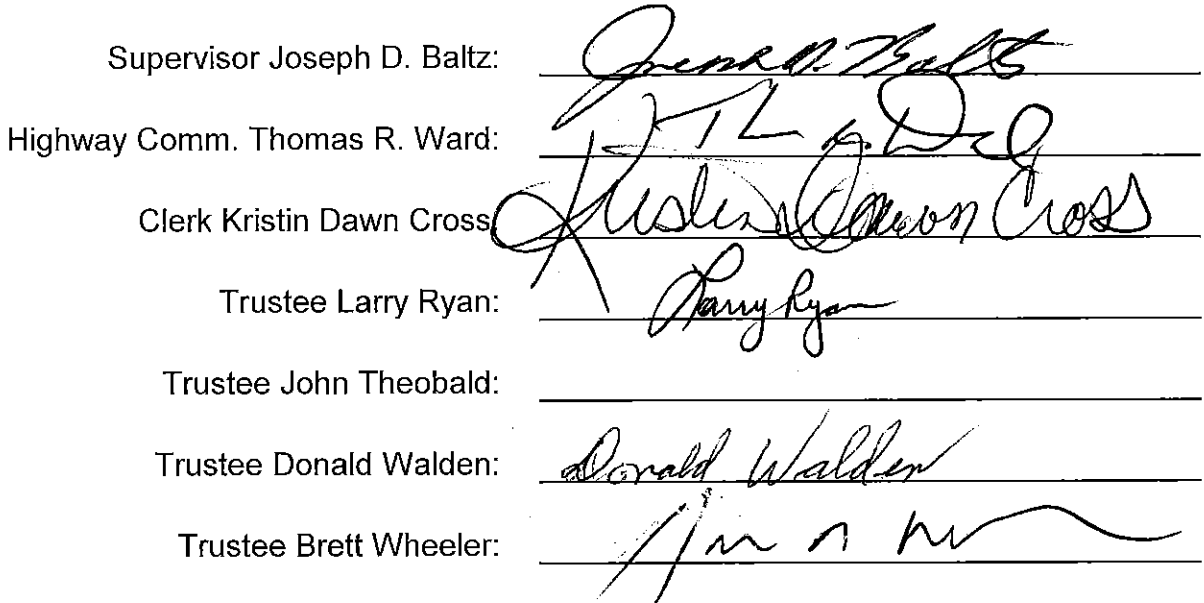 Supervisor Joseph D. Baltz: Joseph D. Baltz
Highway Comm. Thomas R. Ward:
Clerk Kristin Dawn Cross Kristin Dawn Cross
Trustee Larry Ryan: Larry Ryan
Trustee John Theobald:
Trustee Donald Walden: Donald Walden
Trustee Brett Wheeler: